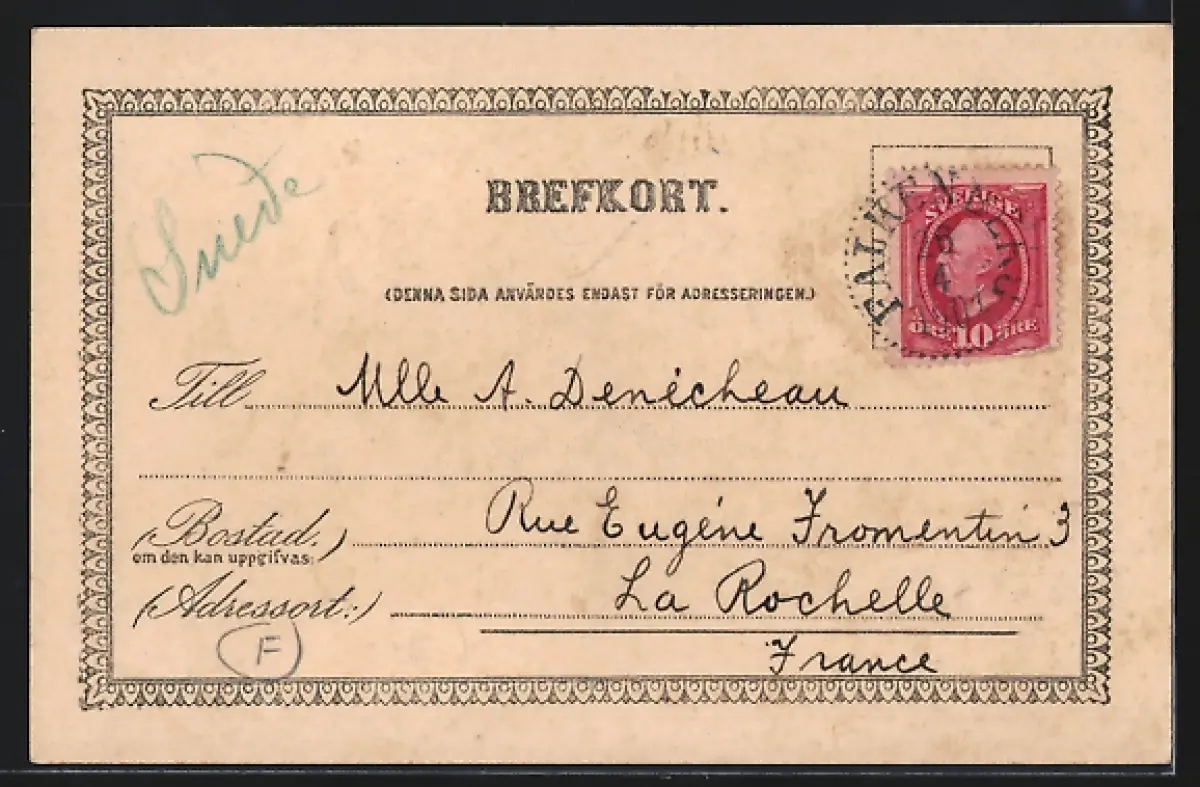 Suède
BREFKORT.
(DENNA SIDA ANVÄNDES ENDAST FÖR ADRESSERINGEN.)
SVERIGE
ÖRE 10 ÖRE
Till Mlle A. Denécheau
(Bostad.) Rue Eugéne Fromentin 3
om den kan uppgifvas:
(Adressort:) La Rochelle
France
F